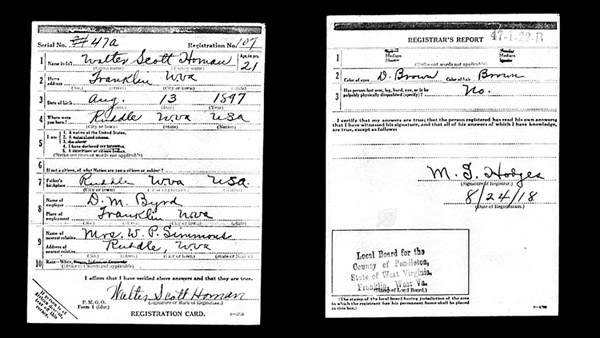 Serial No. # 47a Registration No. 107
1 Name in full Walter Scott Homan Age, in yrs. 21
(Given name) (Family name)
2 Home address Franklin W.va
(No.) (Street) (City or town) (State)
3 Date of birth Aug. 13 1897
(Month) (Day) (Year)
4 Where were you born? Ruddle W.va USA
(City or town) (State) (Nation)
5 I am
1. A native of the United States.
2. A naturalized citizen.
3. An alien.
4. I have declared my intention.
5. A noncitizen or citizen Indian.
(Strike out lines or words not applicable)
6 If not a citizen, of what Nation are you a citizen or subject?
7 Father's birthplace Ruddle W.va USA.
(City or town) (State) (Nation)
8 Name of employer D. M. Byrd
Place of employment Franklin W.va
(No.) (Street) (City or town) (State)
9 Name of nearest relative Mrs. W. P. Simmons
Address of nearest relative Ruddle, W.va
(No.) (Street) (City or town) (State)
10 Race—White,
(Strike out words not applicable)
I affirm that I have verified above answers and that they are true.
P. M. G. O.
Form 1 (blue)
Walter Scott Homan
(Signature or Mark of Registrant.)
REGISTRATION CARD.
REGISTRAR'S REPORT 47-1-22-B
1 Medium Medium
(Strike out words not applicable)
2 Color of eyes D. Brown Color of hair Brown
3 Has person lost arm, leg, hand, eye, or is he palpably physically disqualified (specify)? No.
I certify that my answers are true; that the person registered has read his own answers
that I have witnessed his signature, and that all of his answers of which I have knowledge,
are true, except as follows:
M. T. Hodges
(Signature of Registrar.)
8/24/18
(Date of Registration.)
Local Board for the
County of Pendleton,
State of West Virginia.
Franklin, West Va.
(Stamp of Local Board.)
(The stamp of the local board having jurisdiction of the area
in which the registrant has his permanent home shall be placed
in this box.)